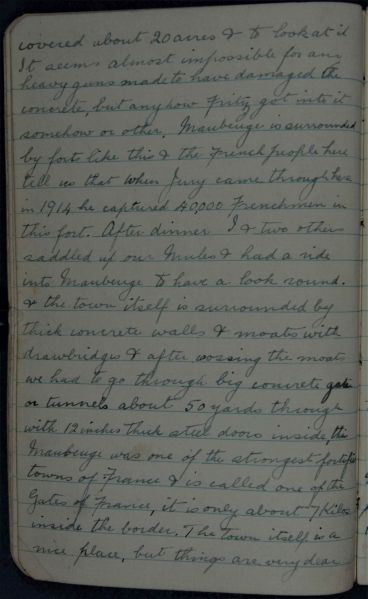 covered about 20 acres & to look at it
It seems almost impossible for any
heavy guns made to have damaged the
concrete, but anyhow Fritz got into it
somehow or other. Maubeuge is surrounded
by forts like this & the French people here
tell us that when Jerry came through here
in 1914 he captured 40,000 Frenchmen in
this fort. After dinner I & two others
saddled up our Mules & had a ride
into Maubeuge to have a look round.
& the town itself is surrounded by
thick concrete walls & moats with
drawbridges & after cossing the moats
we had to go through big concrete gate
or tunnels about 50 yards through
with 12 inches thick steel doors inside, the
Maubeuge was one of the strongest fortified
towns of France & is called one of the
Gates of France, it is only about 7 Kilos
inside the border. The town itself is a
nice place, but things are very dear